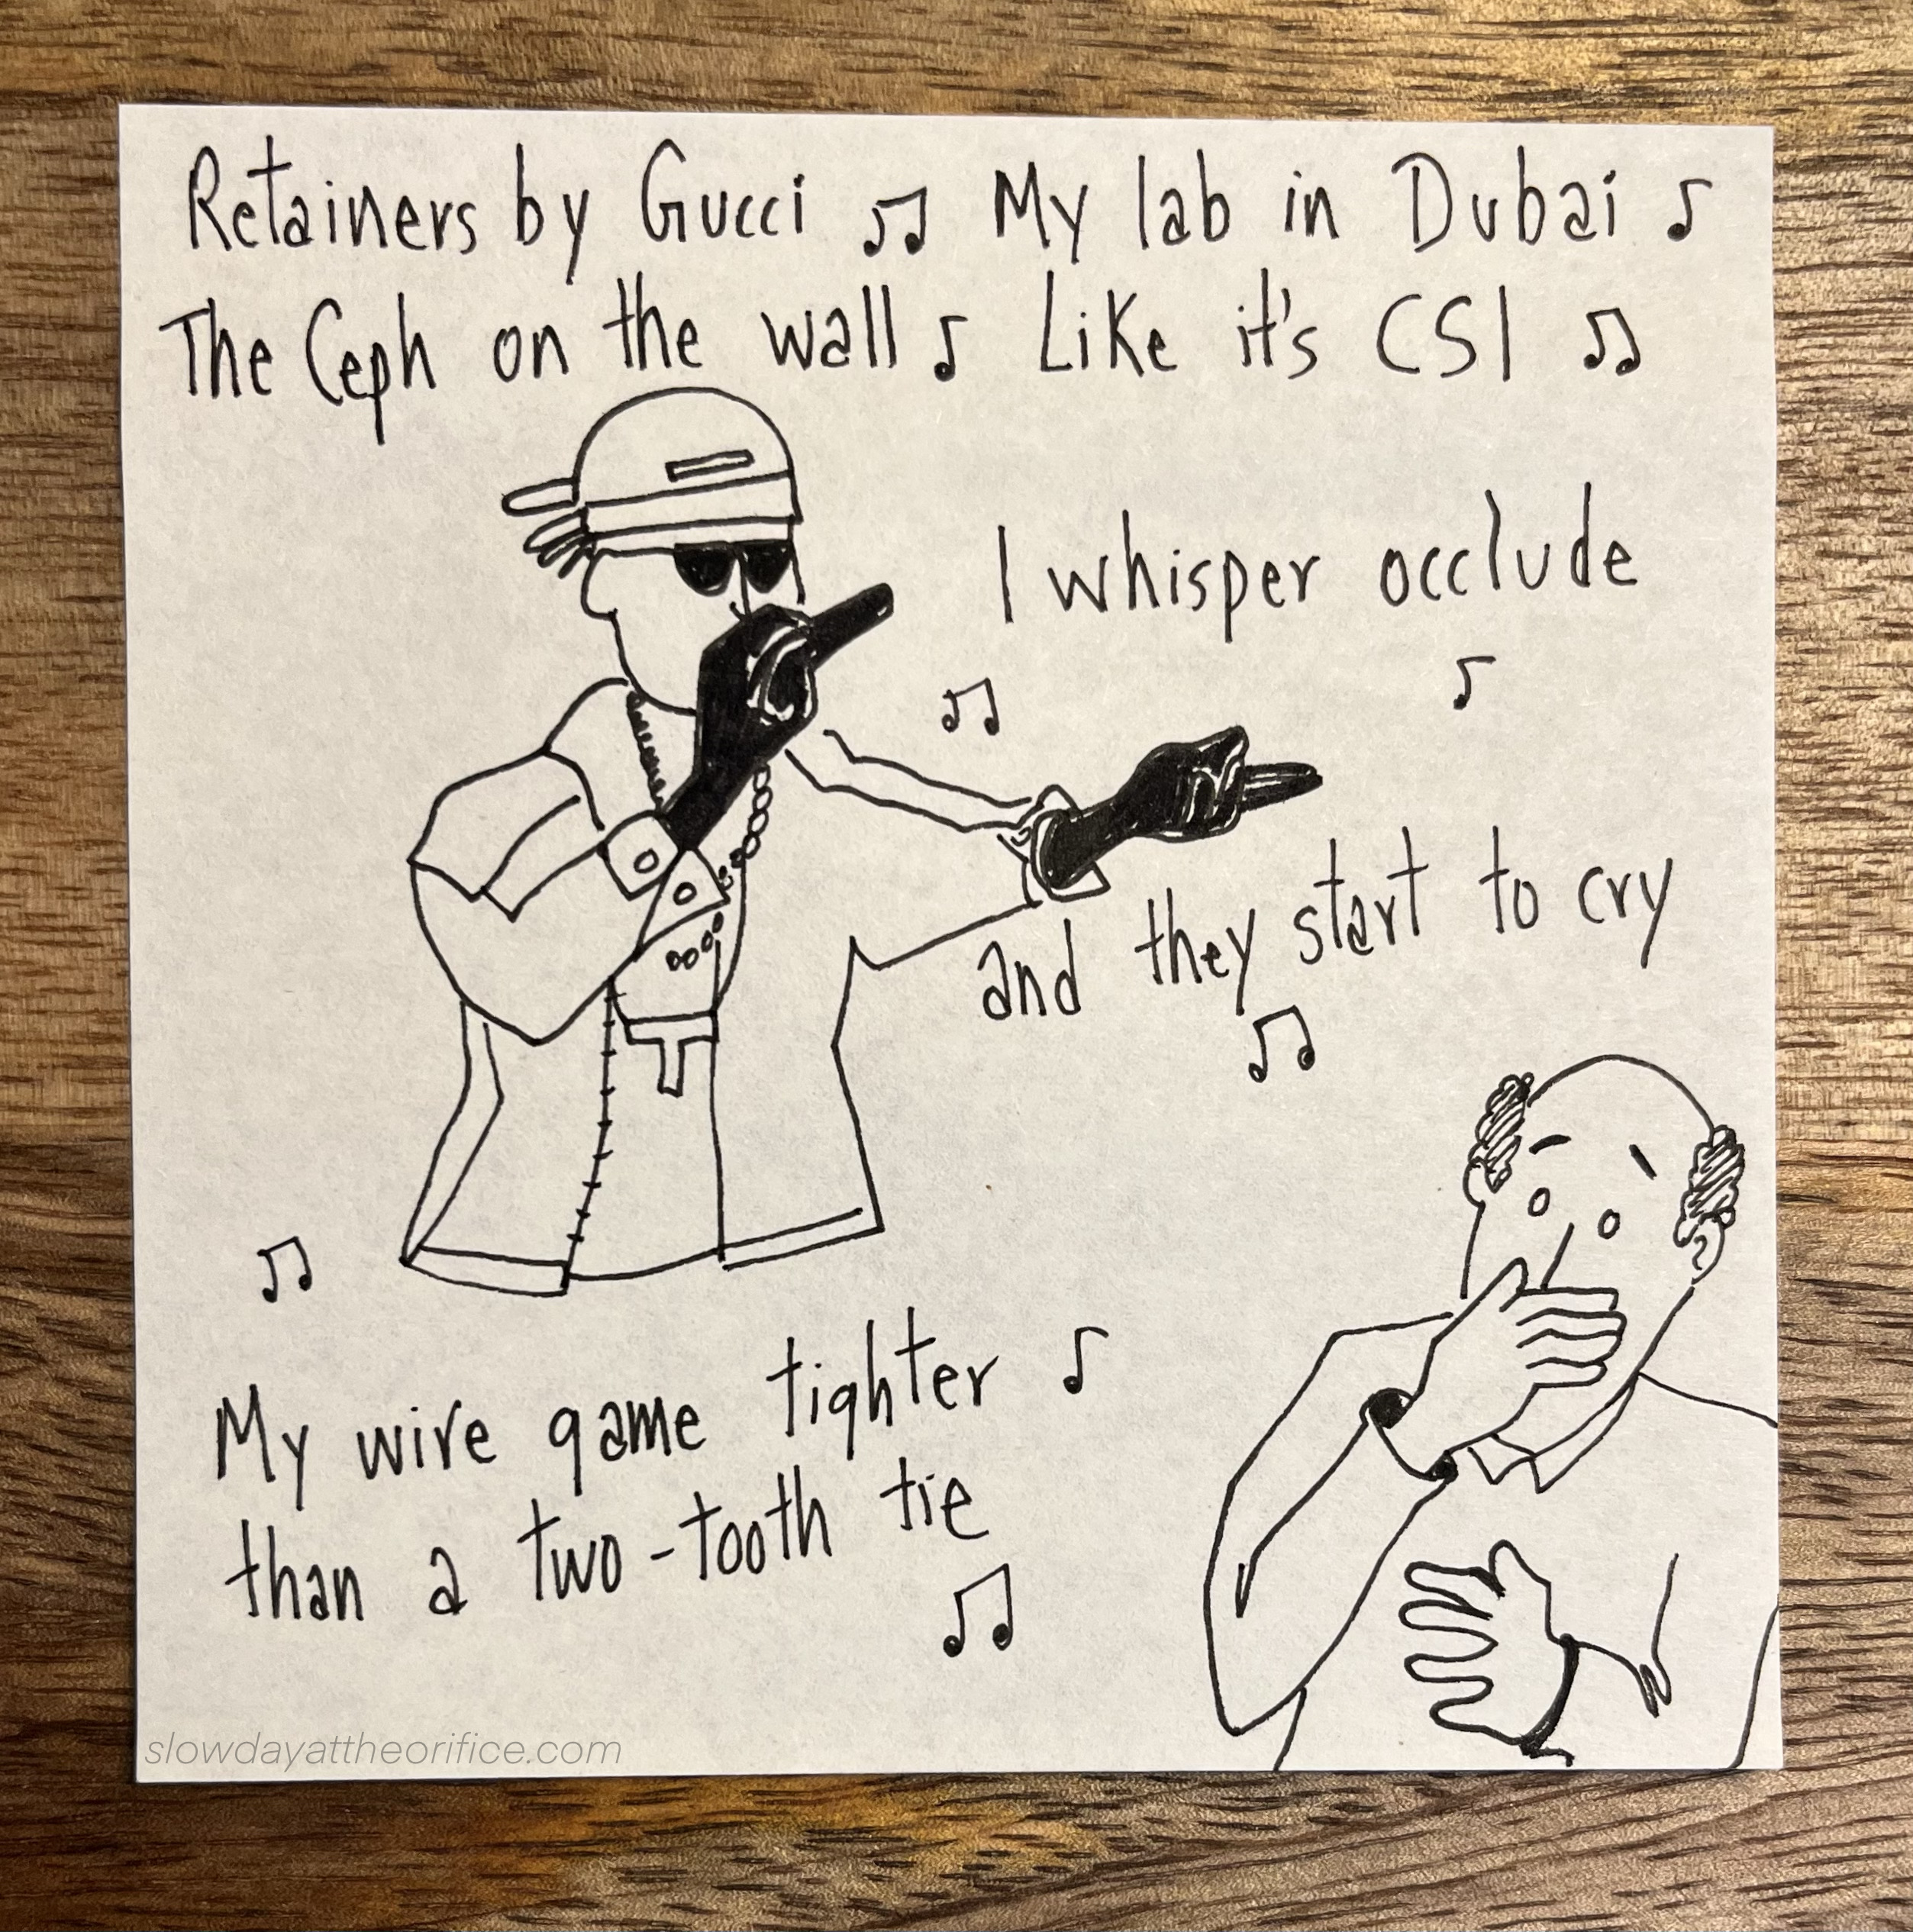 Retainers by Gucci ♫ My lab in Dubai ♪
The Ceph on the wall ♪ Like it's CSI ♫
I whisper occlude
♫ ♪
and they start to cry
♫
♫
My wire game tighter ♪
than a two-tooth tie
♫
slowdayattheorifice.com